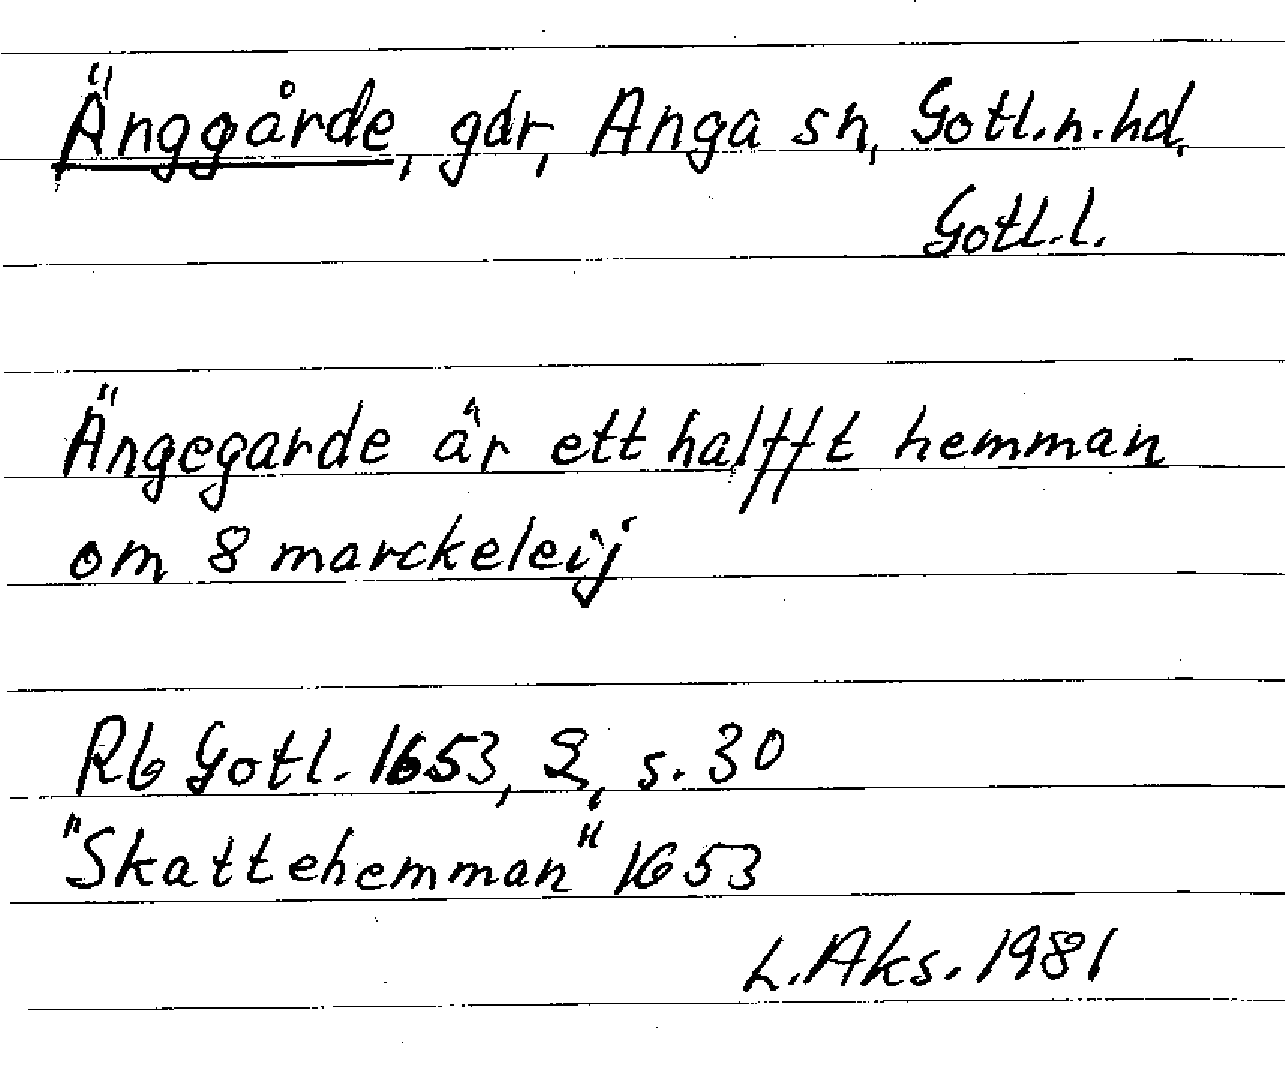 Änggårde, gdr, Anga sn, Gotl.n.hd.
Gotl.l.
Ängegarde är ett halfft hemman
om 8 marckeleij
Rb Gotl. 1653, 2, s. 30
"Skattehemman" 1653
L.Aks. 1981